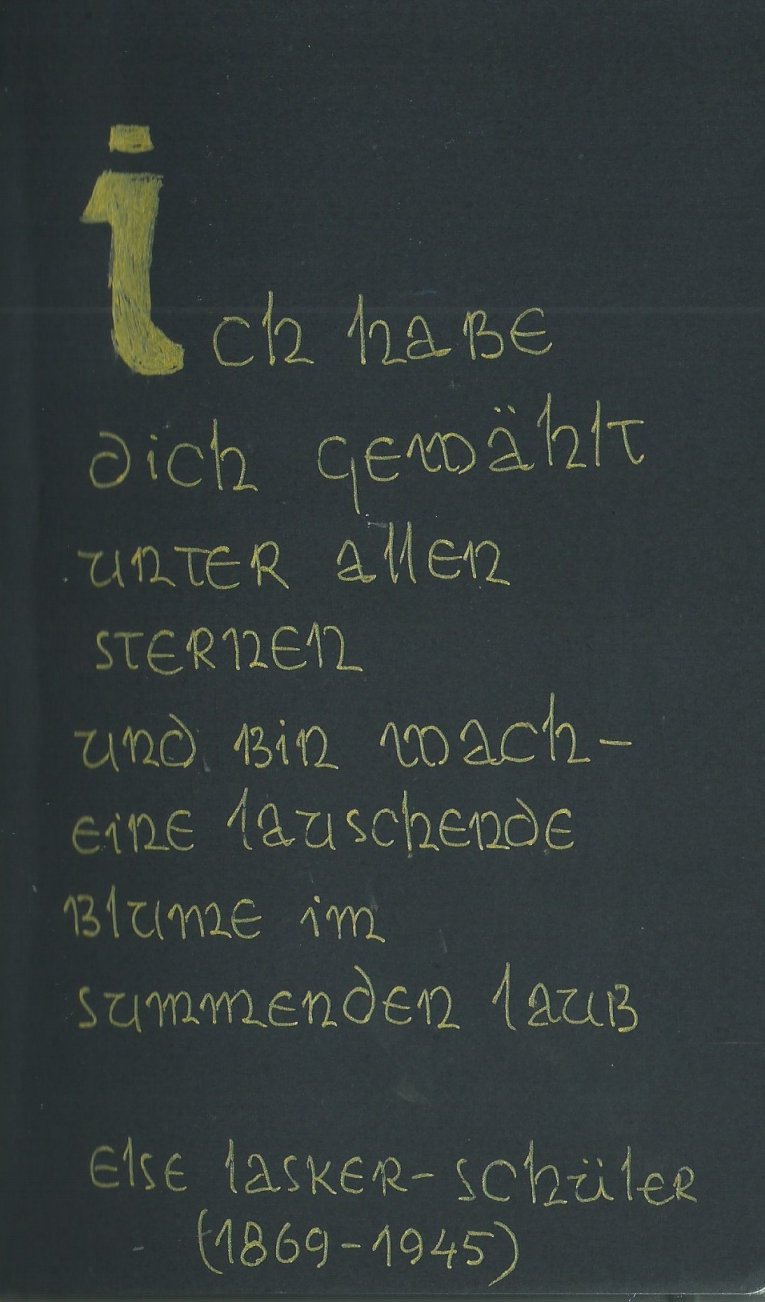 ich habe
dich gewählt
unter allen
sternen
und bin wach–
eine lauschende
blume im
summenden laub
else lasker-schüler
(1869-1945)